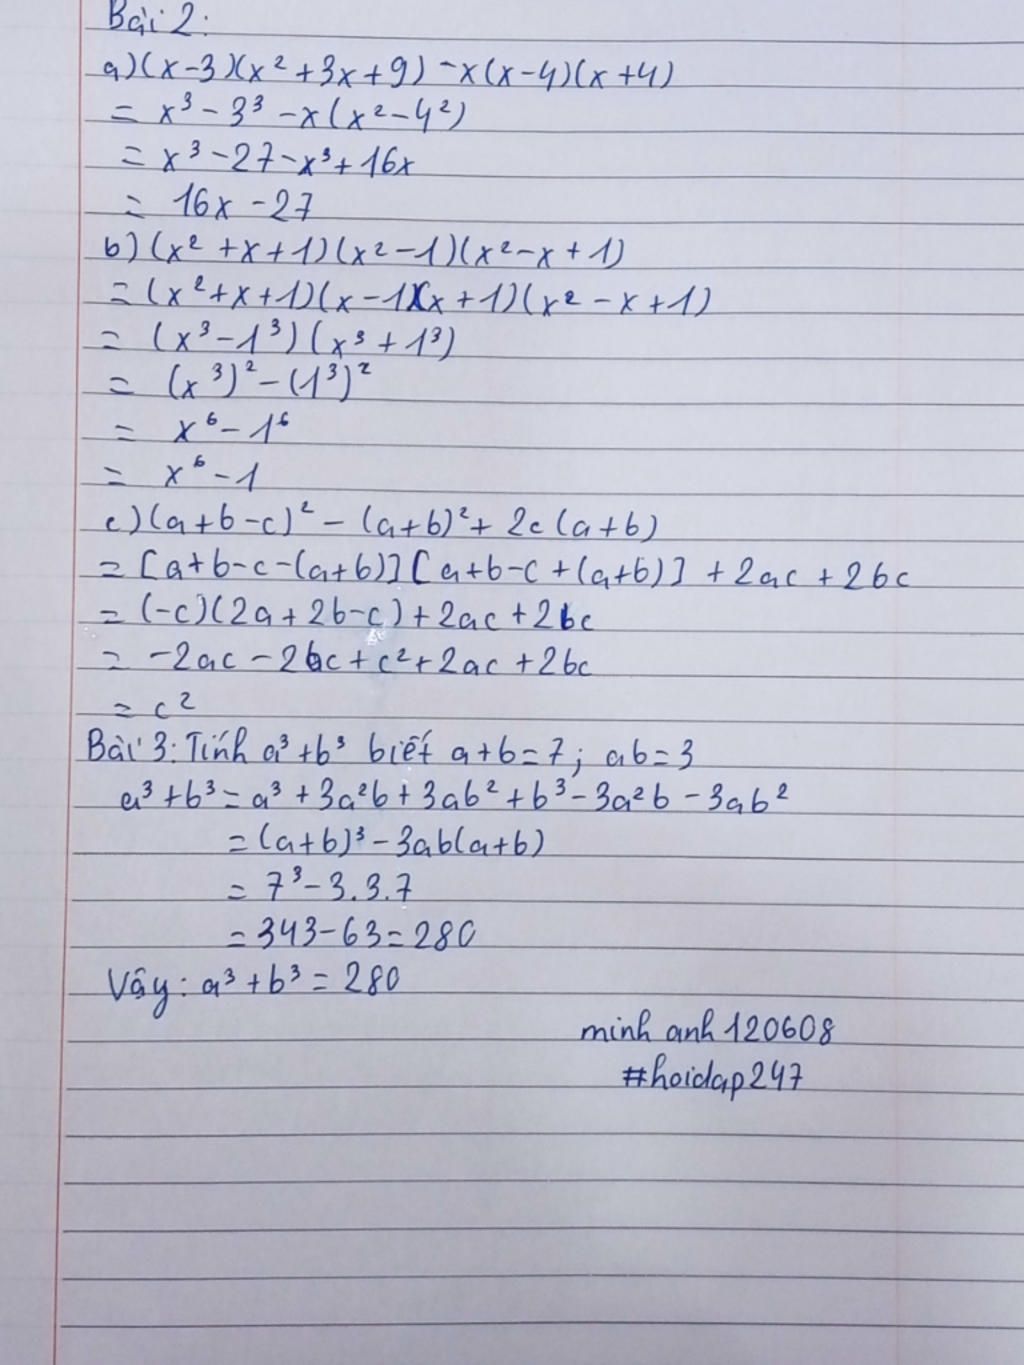 Bài 2:
a) (x-3)(x² +3x+9) -x(x-4)(x+4)
= x³ - 3³ -x(x²-4²)
= x³ -27-x³+16x
= 16x -27
b) (x² +x+1)(x²-1)(x²-x+1)
= (x²+x+1)(x-1)(x+1)(x² -x+1)
= (x³-1³)(x³+1³)
= (x³)²-(1³)²
= x⁶-1⁶
= x⁶-1
c) (a+b-c)² - (a+b)²+ 2c(a+b)
= [a+b-c-(a+b)][a+b-c+(a+b)] +2ac +2bc
= (-c)(2a+2b-c)+2ac+2bc
= -2ac -2bc+c²+2ac+2bc
= c²
Bài 3: Tính a³+b³ biết a+b=7; ab=3
a³+b³=a³+3a²b+3ab²+b³-3a²b-3ab²
= (a+b)³-3ab(a+b)
= 7³-3.3.7
=343-63=280
Vậy: a³+b³=280
minh anh 120608
#hoidap247